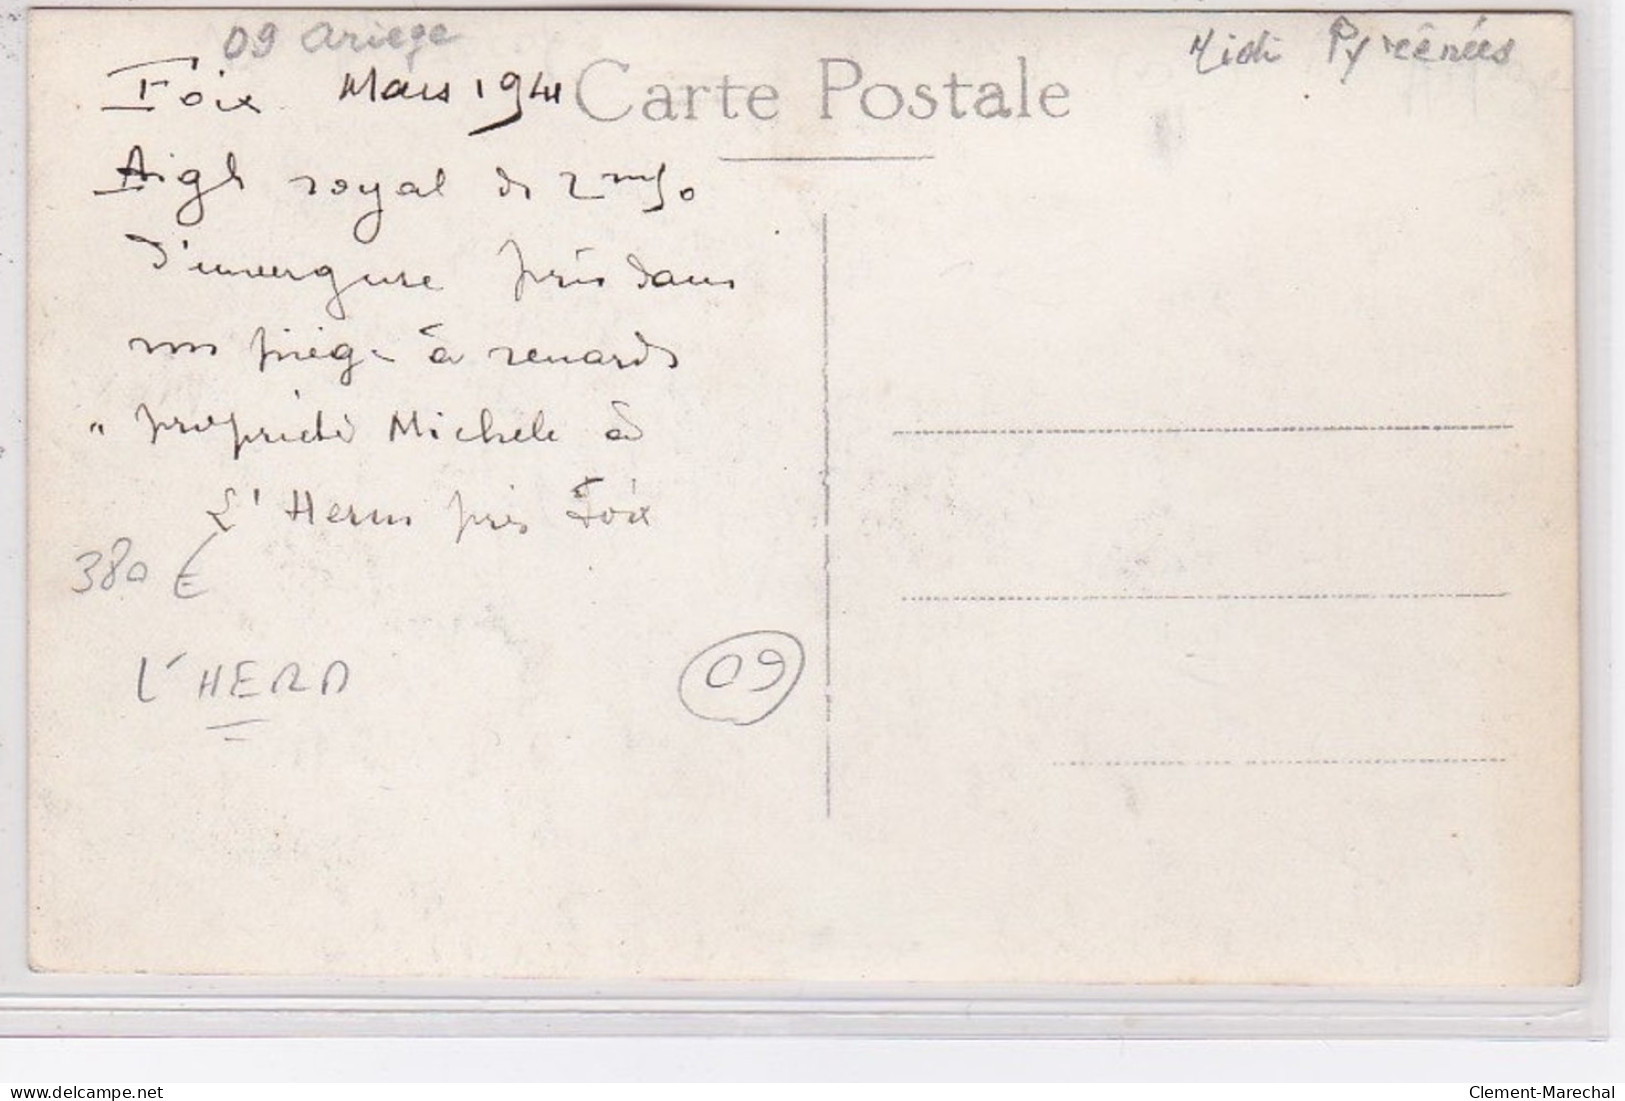 09 Ariege
Midi Pyrénées
Foix Mars 1941
Carte Postale
Aigle royal de 2m50
d'envergure pris dans
un piège à renards
" propriété Michele à
L'Herm près Foix
380 €
L'HERM
09
www.delcampe.net
Clement-Marechal